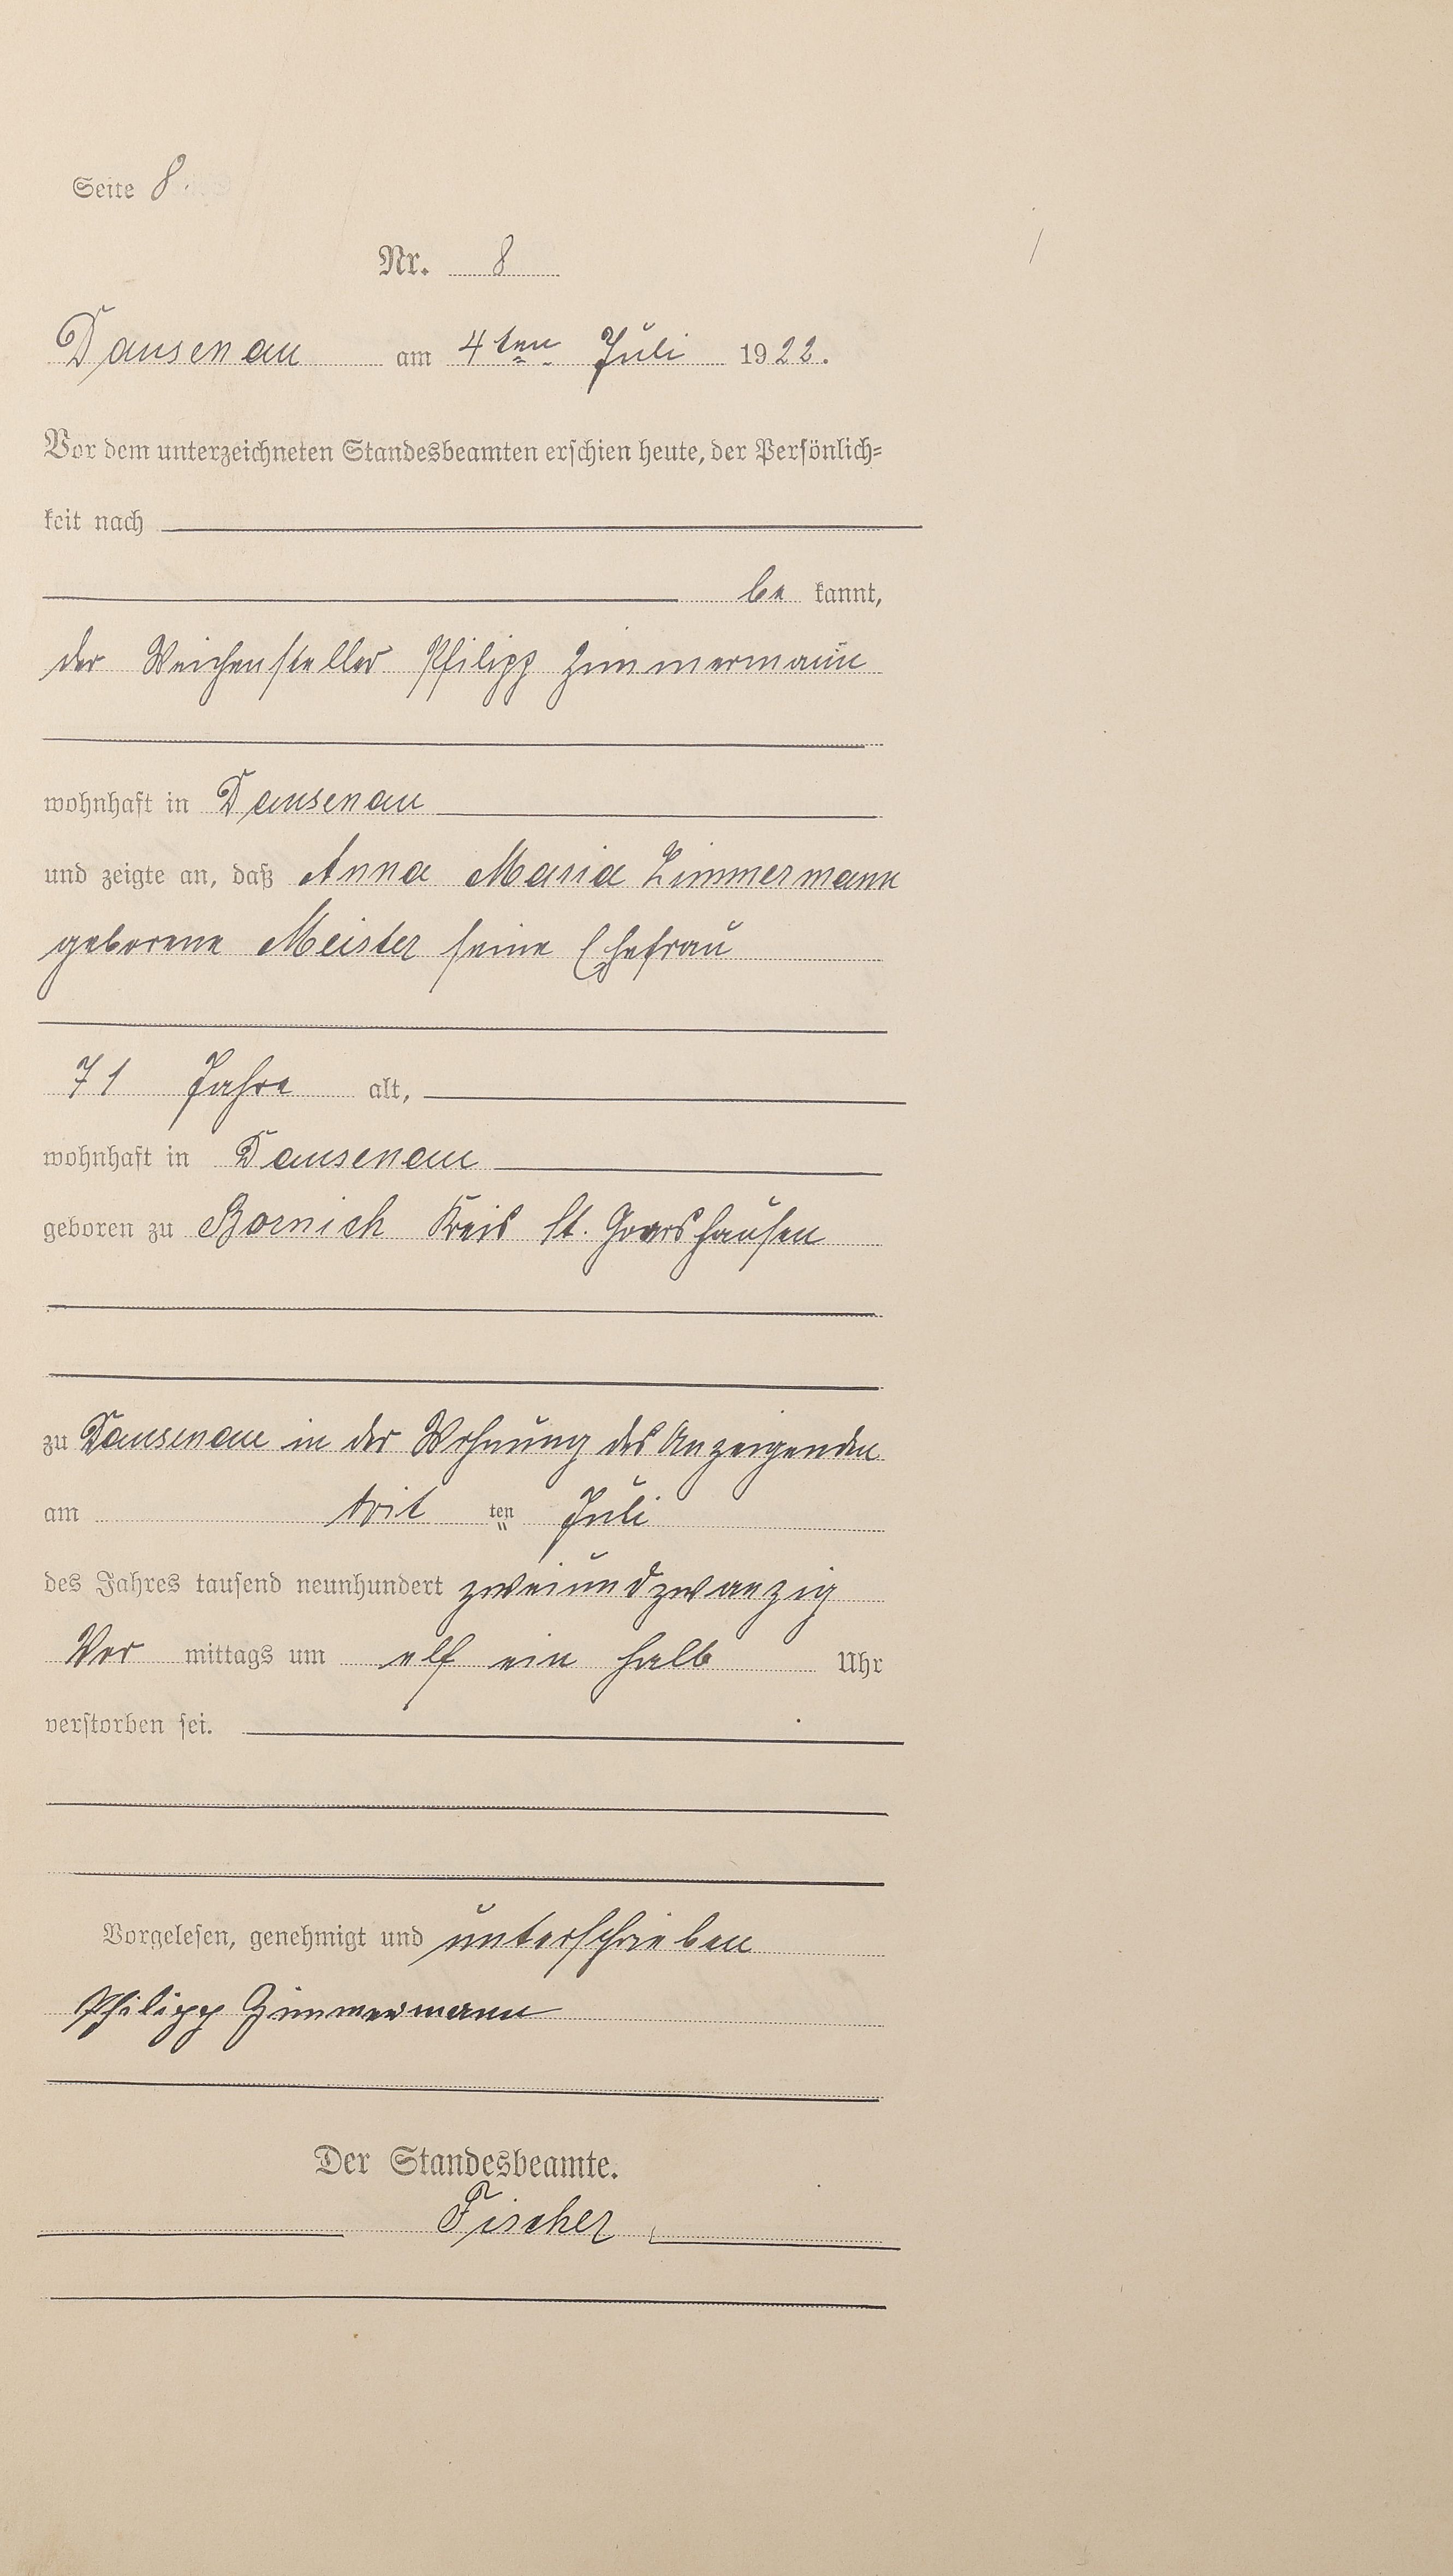 Seite 8.
Nr. 8
Dausenau am 4ten Juli 1922.
Vor dem unterzeichneten Standesbeamten erschien heute, der Persönlich=
keit nach
be kannt,
der Weichensteller Philipp Zimmermann
wohnhaft in Dausenau
und zeigte an, daß Anna Maria Zimmermann
geborene Meister seine Ehefrau
71 Jahre alt,
wohnhaft in Dausenau
geboren zu Bornich Kreis St. Goarshausen
zu Dausenau in der Wohnung des Anzeigenden
am drit ten Juli
des Jahres tausend neunhundert zweiundzwanzig
Vor mittags um elf ein halb Uhr
verstorben sei.
Vorgelesen, genehmigt und unterschrieben
Philipp Zimmermann
Der Standesbeamte.
Fischer